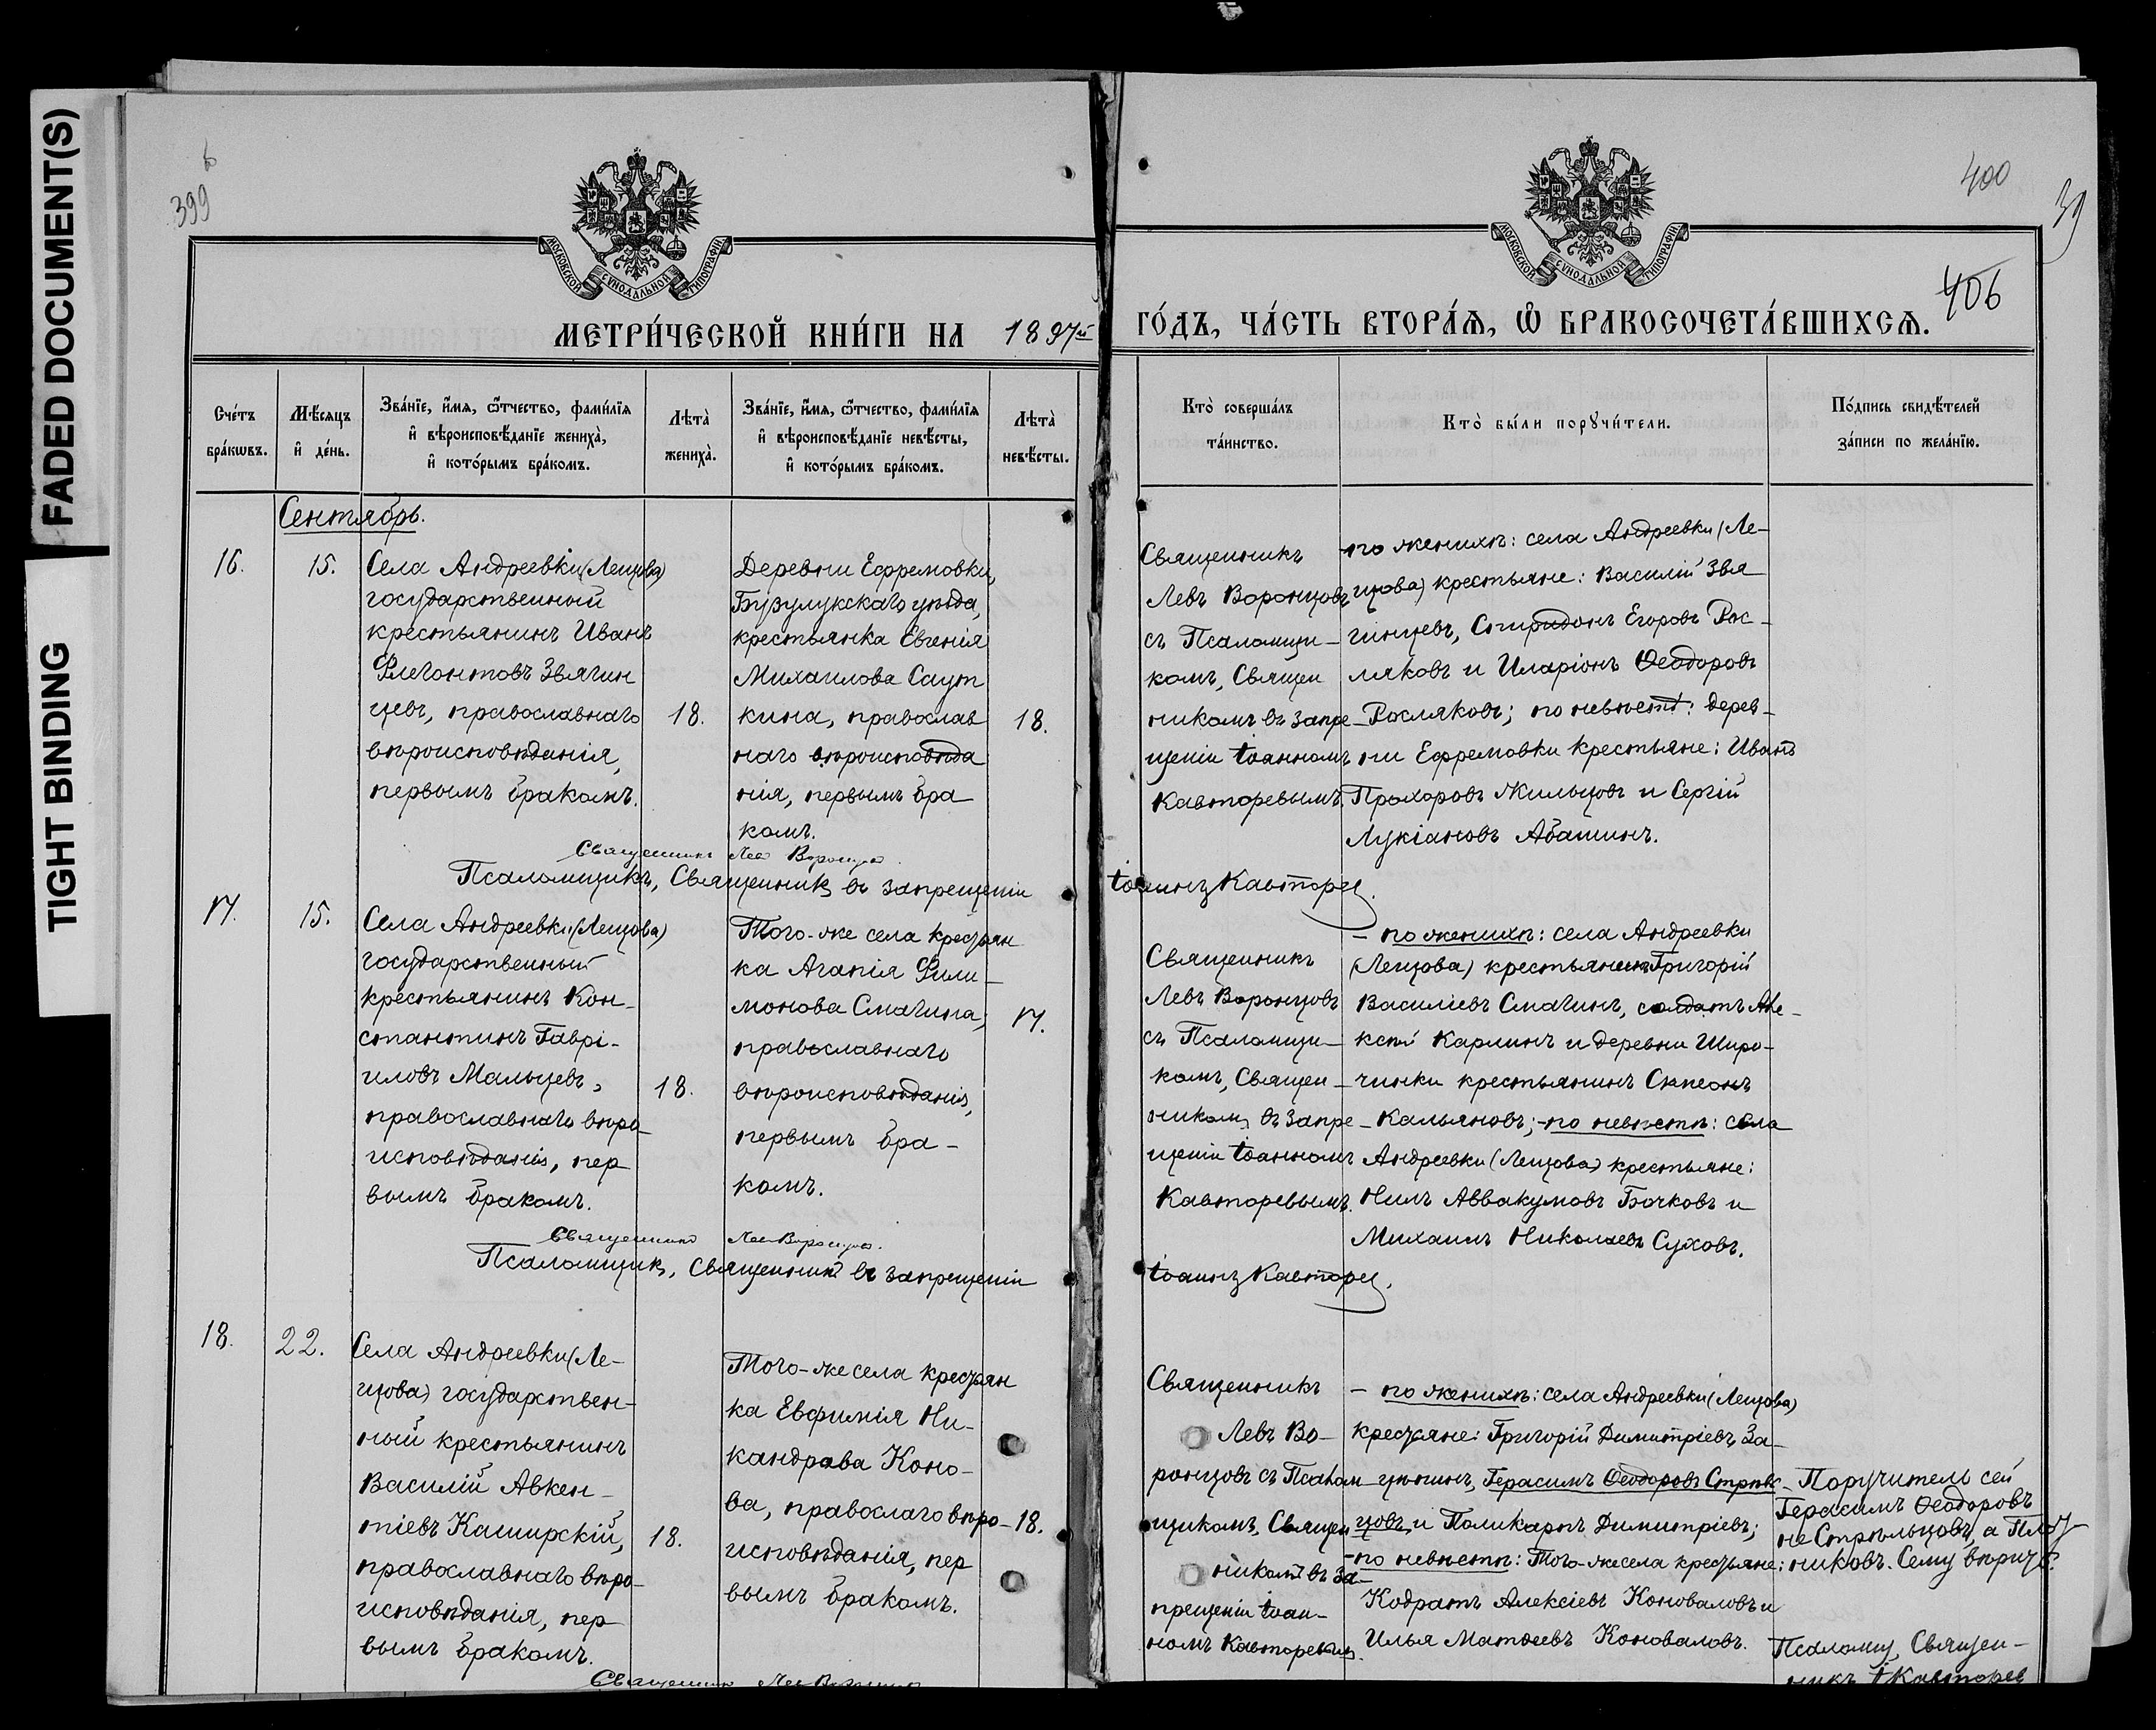 FADED DOCUMENT(S)
TIGHT BINDING
399
400
39
406
МОСКОВСКОЙ СУНОДАЛЬНОЙ ТИПОГРАФІИ
МОСКОВСКОЙ СУНОДАЛЬНОЙ ТИПОГРАФІИ
МЕТРИ́ЧЕСКОЙ КНИ́ГИ НА 1897й
ГО́ДЪ, ЧА́СТЬ ВТОРА́Ѧ, Ѡ҆ БРАКОСОЧЕТА́ВШИХСѦ.
Сче́тъ
бра́кѡвъ.
Мѣ́сяцъ
и҆ де́нь.
Зва́нїе, и҆́мя, ѻ҆́тчество, фами́лїя
и҆ вѣроисповѣ́данїе жениха̀,
и҆ кото́рымъ бра́комъ.
Лѣта̀
жениха̀.
Зва́нїе, и҆́мя, ѻ҆́тчество, фами́лїя
и҆ вѣроисповѣ́данїе невѣ́сты,
и҆ кото́рымъ бра́комъ.
Лѣта̀
невѣ́сты.
Кто̀ соверша́лъ
та́инство.
Кто̀ бы́ли порꙋчи́тели.
По́дпись свидѣ́телей
за́писи по жела́нїю.
Сентябрь.
16.
15.
Села Андреевки (Лещова)
государственный
крестьянинъ Иванъ
Флегонтовъ Звягин
цевъ, православнаго
вѣроисповѣданія,
первымъ бракомъ.
18.
Деревни Ефремовки,
Бузулукскаго уѣзда,
крестьянка Евгенія
Михаилова Саут
кина, православ
наго вѣроисповѣда
нія, первымъ бра
комъ.
18.
Священникъ
Левъ Воронцовъ
съ Псаломщи-
комъ, Священ
никомъ въ запре-
щеніи Іоанномъ
Кавторевымъ.
по женихѣ: села Андреевки (Ле-
щова) крестьяне: Василій Звя
гинцевъ, Спиридонъ Егоровъ Рос-
ляковъ и Иларіонъ Ѳеодоровъ
Росляковъ; по невѣстѣ: дерев-
ни Ефремовки крестьяне: Иванъ
Прохоровъ Жильцовъ и Сергій
Лукіановъ Абашинъ.
Священникъ Левъ Воронцовъ.
Псаломщикъ, Священникъ въ запрещеніи
Іоаннъ Кавторев.
17.
15.
Села Андреевки (Лещова)
государственный
крестьянинъ Кон-
стантинъ Гаврі-
иловъ Мальцевъ,
православнаго вѣро-
исповѣданія, пер
вымъ бракомъ.
18.
Того-же села крестьян
ка Агапія Фили-
монова Смагина,
православнаго
вѣроисповѣданія,
первымъ бра-
комъ.
17.
Священникъ
Левъ Воронцовъ
съ Псаломщи-
комъ, Священ-
никомъ въ запре-
щеніи Іоанномъ
Кавторевымъ.
- по женихѣ: села Андреевки
(Лещова) крестьянинъ Григорій
Василіевъ Смагинъ, солдатъ Але-
ксѣй Карлинъ и деревни Широ-
чинки крестьянинъ Симеонъ
Кальяновъ; - по невѣстѣ: села
Андреевки (Лещова) крестьяне:
Нилъ Аввакумовъ Бочковъ и
Михаилъ Николаевъ Суховъ.
Священникъ Левъ Воронцовъ.
Псаломщикъ, Священникъ въ запрещеніи
Іоаннъ Кавторев.
18.
22.
Села Андреевки (Ле-
щова) государствен-
ный крестьянинъ
Василій Авкен-
тіевъ Каширскій,
православнаго вѣро-
исповѣданія, пер
вымъ бракомъ.
18.
Того-же села крестьян
ка Евфимія Ни-
кандрова Коно-
ва, православго вѣро-
исповѣданія, пер
вымъ бракомъ.
18.
Священникъ
Левъ Во-
ронцовъ съ Псалом
щикомъ, Священ
никомъ въ за-
прещеніи Іоан-
номъ Кавторевымъ.
- по женихѣ: села Андреевки (Лещова)
крестьяне: Григорій Димитріевъ За-
цѣпинъ, Герасимъ Ѳеодоровъ Стрѣль-
цовъ и Поликарпъ Димитріевъ;
- по невѣстѣ: Того-же села крестьяне:
Кодратъ Алексіевъ Коноваловъ и
Илья Матѳеевъ Коноваловъ.
Поручитель сей
Герасимъ Ѳеодоровъ
не Стрѣльцовъ, а Плот
никовъ. Сему вѣрить.
Псаломщ. Священ-
никъ І Кавторев
Священникъ Левъ Воронцовъ